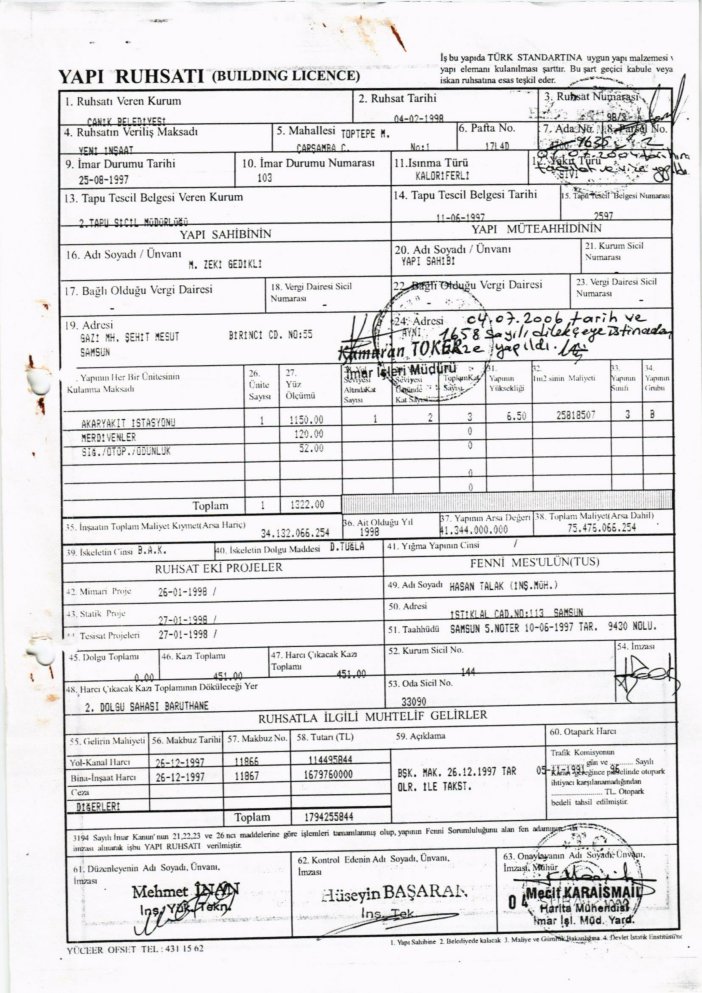 İş bu yapıda TÜRK STANDARTINA uygun yapı malzemesi
yapı elemanı kulanılması şarttır. Bu şart geçici kabule veya
iskan ruhsatına esas teşkil eder.
YAPI RUHSATI (BUILDING LICENCE)
1. Ruhsatı Veren Kurum
CANİK BELEDİYESİ
2. Ruhsat Tarihi
04-02-1998
3. Ruhsat Numarası
98/
4. Ruhsatın Veriliş Maksadı
YENİ İNŞAAT
5. Mahallesi TOPTEPE M.
ÇARŞAMBA C.
6. Pafta No.
17L4D
7. Ada No.
8. Parsel No.
No:1
9635
2
9. İmar Durumu Tarihi
25-08-1997
10. İmar Durumu Numarası
103
11.Isınma Türü
KALORİFERLİ
12. Yakıt Türü
SIVI
13. Tapu Tescil Belgesi Veren Kurum
2.TAPU SİCİL MÜDÜRLÜĞÜ
14. Tapu Tescil Belgesi Tarihi
11-06-1997
15. Tapu Tescil Belgesi Numarası
2597
YAPI SAHİBİNİN
YAPI MÜTEAHHİDİNİN
16. Adı Soyadı / Ünvanı
M. ZEKİ GEDİKLİ
20. Adı Soyadı / Ünvanı
YAPI SAHİBİ
21. Kurum Sicil
Numarası
17. Bağlı Olduğu Vergi Dairesi
-
18. Vergi Dairesi Sicil
Numarası
-
22. Bağlı Olduğu Vergi Dairesi
23. Vergi Dairesi Sicil
Numarası
-
19. Adresi
GAZİ MH. ŞEHİT MESUT
BİRİNCİ CD. NO:55
SAMSUN
24. Adresi
AYNI
04.07.2006 tarih ve
1658 sayılı dilekçeye istinaden
yapıldı.
Kamuran TOKER
İmar İşleri Müdürü
. Yapının Her Bir Ünitesinin
Kulanma Maksadı
26.
Ünite
Sayısı
27.
Yüz
Ölçümü
Seviyesi
AltındaKat
Sayısı
Seviyesi
Üstünde
Kat Sayısı
ToplamKat
Sayısı
31.
Yapının
Yüksekliği
32.
1m2.sinin Maliyeti
33.
Yapının
Sınıfı
34.
Yapının
Grubu
AKARYAKIT İSTASYONU 1 1150.00 1 2 3 6.50 25818507 3 B
MERDİVENLER 120.00 0
SIĞ./OTOP./ODUNLUK 52.00 0
0
0
Toplam 1 1322.00
35. İnşaatın Toplam Maliyet Kıymeti(Arsa Hariç)
34.132.066.254
36. Ait Olduğu Yıl
1998
37. Yapının Arsa Değeri
41.344.000.000
38. Toplam Maliyet(Arsa Dahil)
75.476.066.254
39. İskeletin Cinsi B.A.K.
40. İskeletin Dolgu Maddesi D.TUĞLA
41. Yığma Yapının Cinsi /
RUHSAT EKİ PROJELER
FENNİ MES'ULÜN(TUS)
42. Mimari Proje 26-01-1998 /
43. Statik Proje 27-01-1998 /
44. Tesisat Projeleri 27-01-1998 /
49. Adı Soyadı HASAN TALAK (İNŞ.MÜH.)
50. Adresi
İSTİKLAL CAD.NO:113 SAMSUN
51. Taahhüdü SAMSUN 5.NOTER 10-06-1997 TAR. 9430 NOLU.
45. Dolgu Toplamı
0.00
46. Kazı Toplamı
451.00
47. Harcı Çıkacak Kazı
Toplamı
451.00
52. Kurum Sicil No.
144
54. İmzası
48. Harcı Çıkacak Kazı Toplamının Döküleceği Yer
2. DOLGU SAHASI BARUTHANE
53. Oda Sicil No.
33090
RUHSATLA İLGİLİ MUHTELİF GELİRLER
55. Gelirin Mahiyeti 56. Makbuz Tarihi 57. Makbuz No. 58. Tutarı (TL) 59. Açıklama 60. Otopark Harcı
Yol-Kanal Harcı 26-12-1997 11866 114495844
Bina-İnşaat Harcı 26-12-1997 11867 1679760000
Ceza
DİĞERLERİ
Toplam 1794255844
BŞK. MAK. 26.12.1997 TAR
OLR. İLE TAKST.
Trafik Komisyonun
gün ve ........ Sayılı
05-11-1991 96
Kararı gereğince parselinde otopark
ihtiyacı karşılanamadığından
................ TL. Otopark
bedeli tahsil edilmiştir.
3194 Sayılı İmar Kanun'nun 21,22,23 ve 26 ncı maddelerine göre işlemleri tamamlanmış olup, yapının Fenni Sorumluluğunu alan fen adamının
imzası alınarak işbu YAPI RUHSATI verilmiştir.
61. Düzenleyenin Adı Soyadı, Ünvanı,
İmzası
Mehmet İNAN
İnş. Yük. Tekn.
62. Kontrol Edenin Adı Soyadı, Ünvanı,
İmzası
Hüseyin BAŞARAN
İnş. Tek.
63. Onaylayanın Adı Soyadı Ünvanı,
İmzası, Mühür
04
Mecit KARAİSMAİL
Harita Mühendisi
İmar İşl. Müd. Yard.
YÜCEER OFSET TEL : 431 15 62
1. Yapı Sahibine 2. Belediyede kalacak 3. Maliye ve Gümrük Bakanlığına 4. Devlet İstatik Enstitüsü'ne